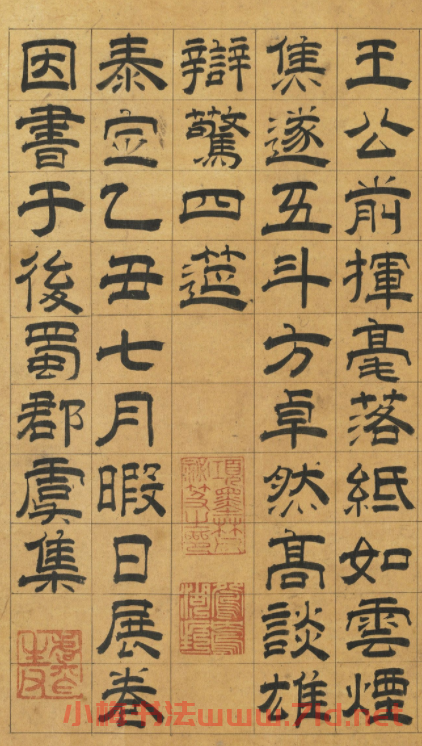 王公前揮毫落紙如雲煙
焦遂五斗方卓然高談雄
辯驚四筵
泰定乙丑七月暇日展卷
因書于後蜀郡虞集
小楷书法www.71d.net